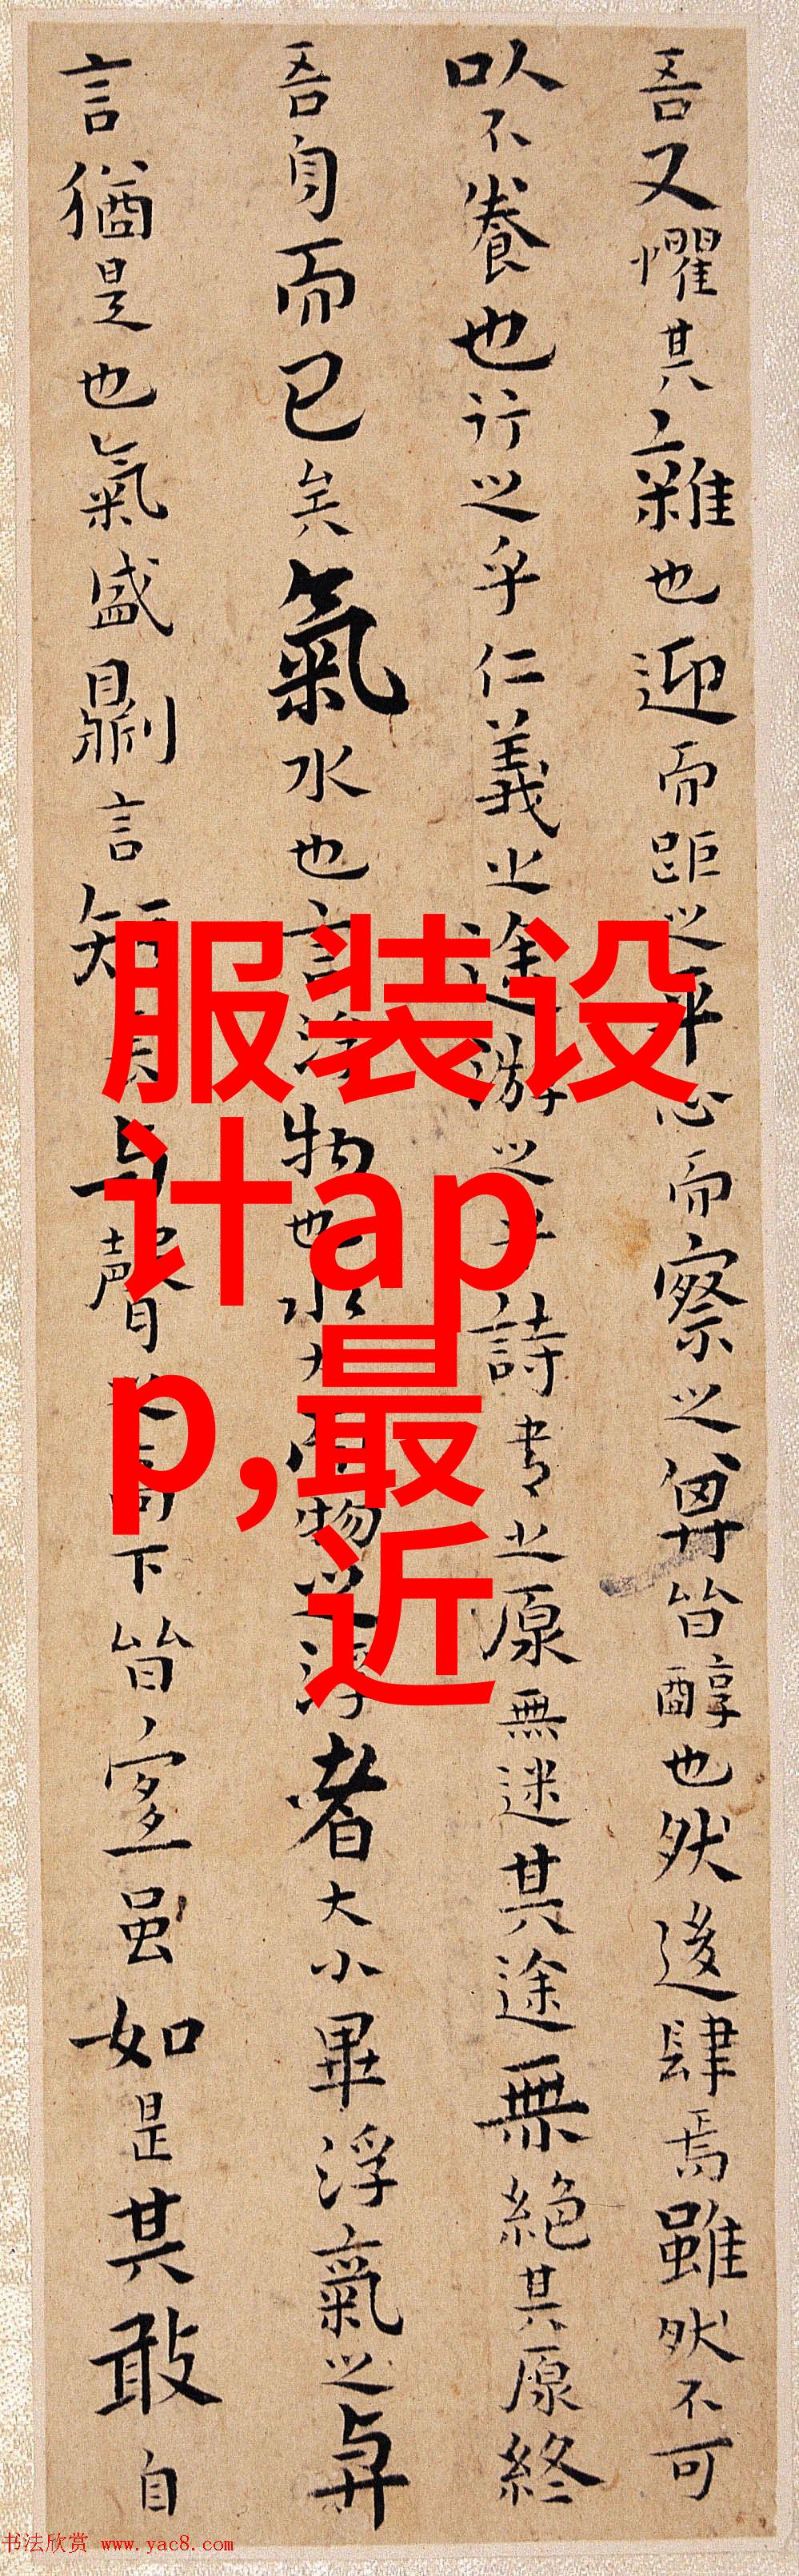 吾又懼其雜也迎而距之平心而察之其皆醇也然後肆焉雖然不可
以不養也行之乎仁義之途游之乎詩書之原無迷其途無絕其原終
吾身而已矣氣水也言浮物也水大而物之浮者大小畢浮氣之與
言猶是也氣盛則言短長與聲之高下皆宜雖如是其敢自
服装设
计ap
p,最
近
书法欣赏 www.yac8.com